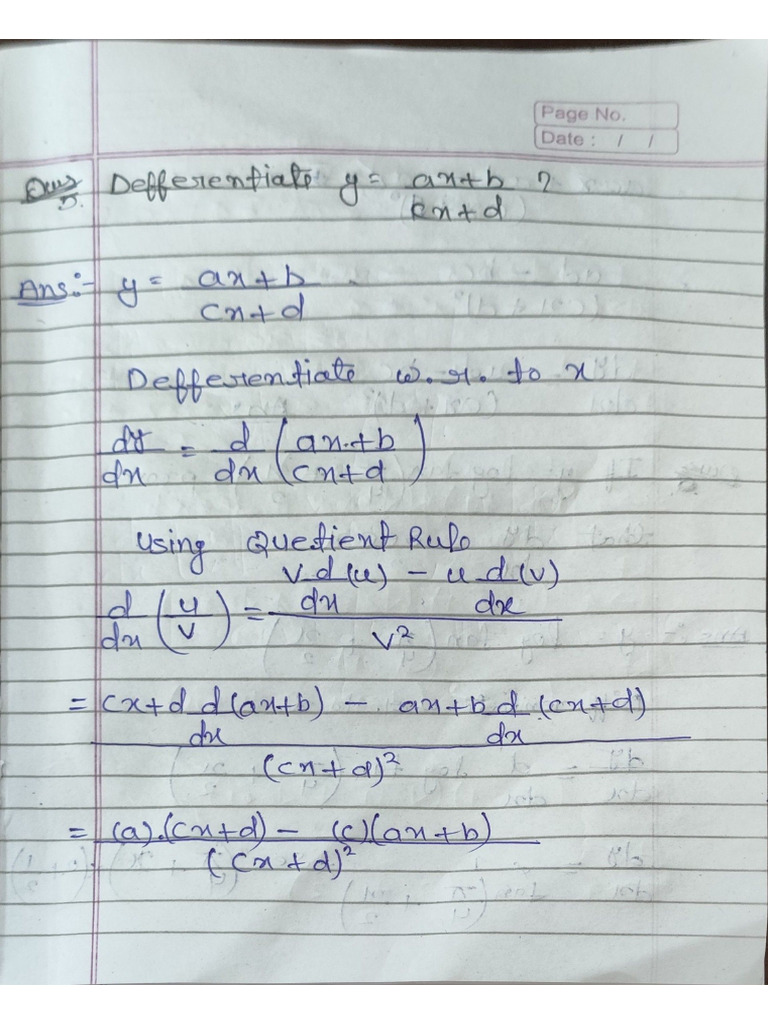 Page No.
Date : / /
Ques 5. Defferentiate y = ax+b / cx+d ?
Ans:- y = ax+b / cx+d
Defferentiate w.r. to x
dy/dx = d/dx (ax+b / cx+d)
Using Quetient Rule
d/dx (u/v) = v d/dx (u) - u d/dx (v) / v²
= cx+d d/dx (ax+b) - ax+b d/dx (cx+d) / (cx+d)²
= (a).(cx+d) - (c)(ax+b) / (cx+d)²